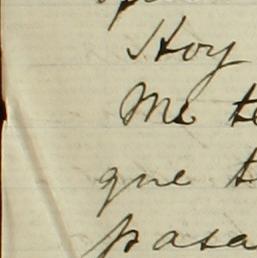 Hoy
Me te
que t
pasa